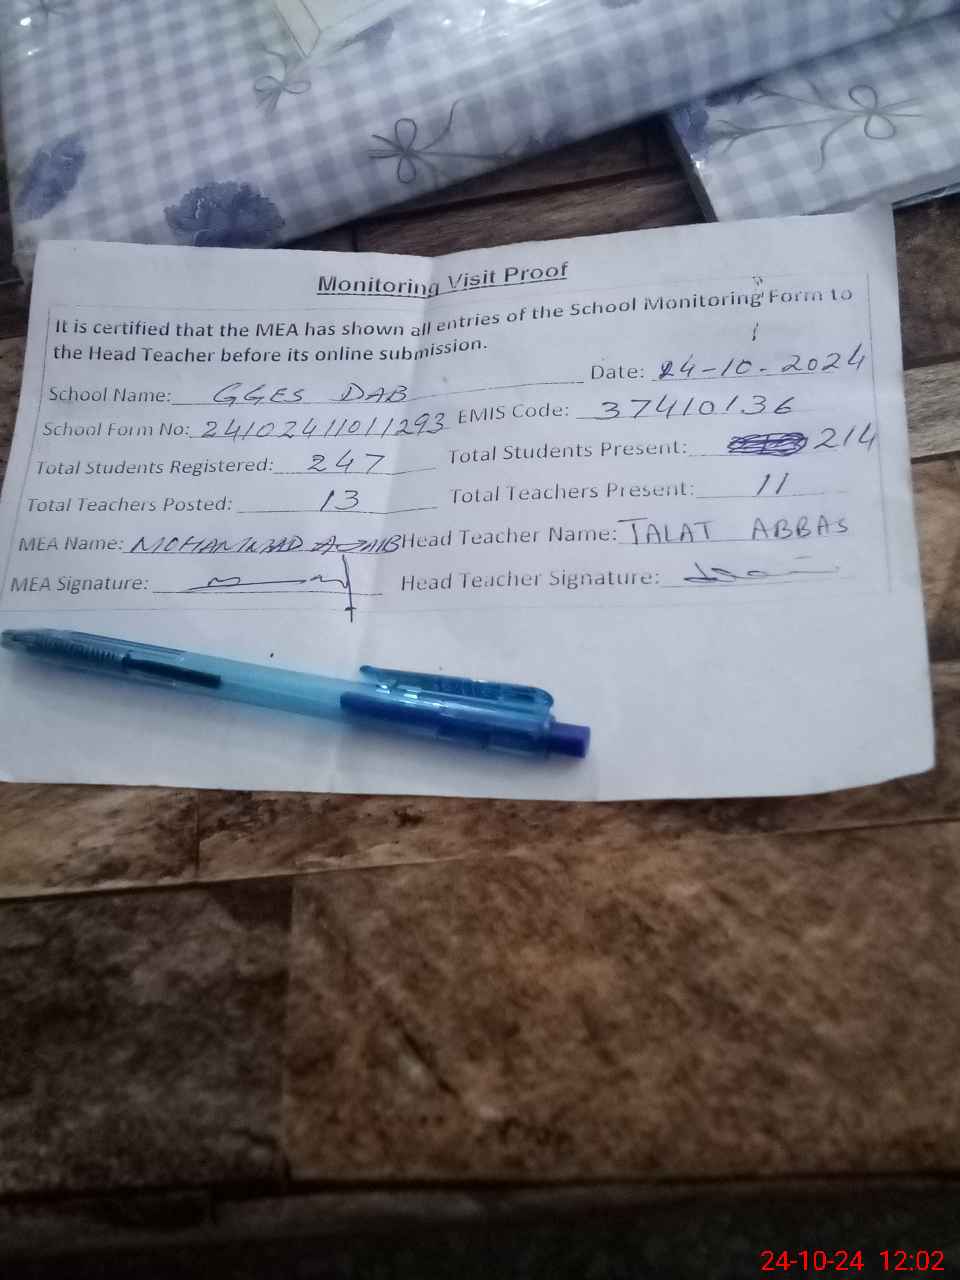 Monitoring Visit Proof
It is certified that the MEA has shown all entries of the School Monitoring Form to
the Head Teacher before its online submission.
School Name: GGES DAB Date: 24-10-2024
School Form No: 24102411011293 EMIS Code: 37410136
Total Students Registered: 247 Total Students Present: 214
Total Teachers Posted: 13 Total Teachers Present: 11
MEA Name: MOHAMMAD AJAIB Head Teacher Name: TALAT ABBAS
MEA Signature: Head Teacher Signature:
24-10-24 12:02